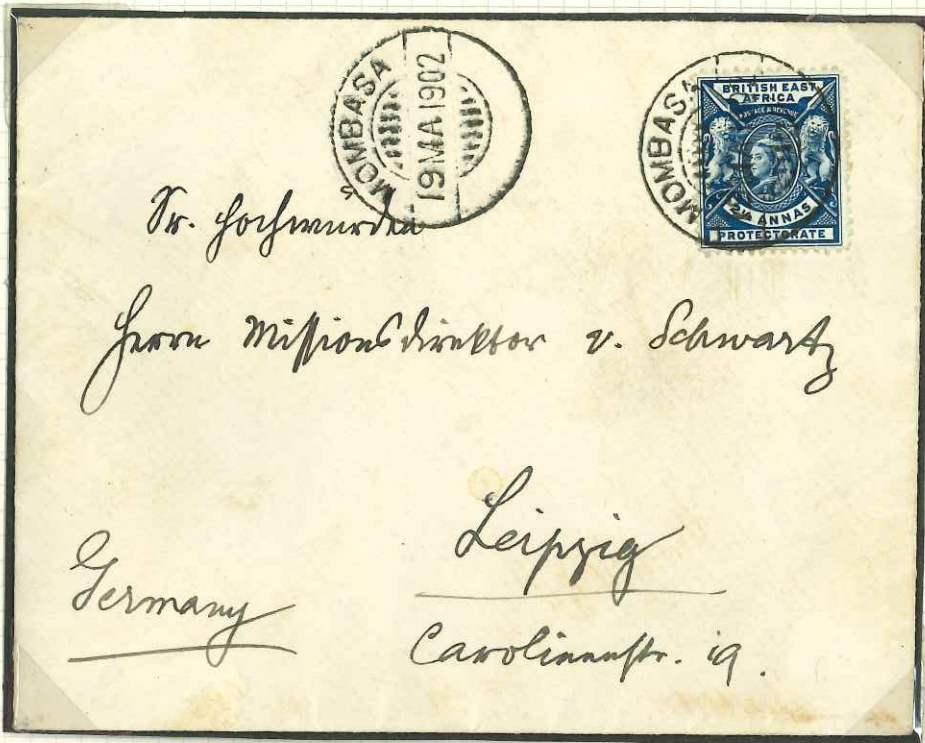 MOMBASA
19 MA 1902
MOMBASA
BRITISH EAST
AFRICA
POSTAGE & REVENUE
2½ ANNAS
PROTECTORATE
Sr. Hochwürden
Herrn Missionsdirektor v. Schwartz
Leipzig
Germany
Carolinenstr. 19.